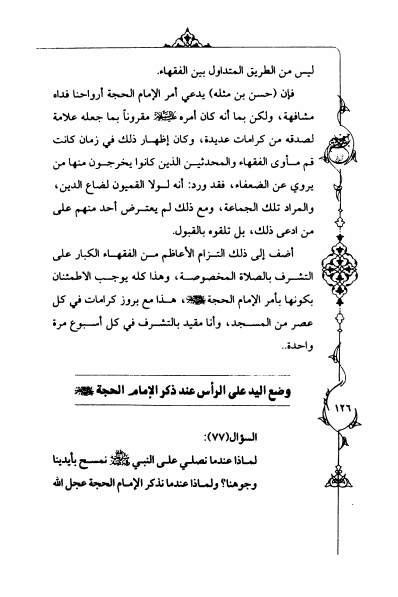 ليس من الطريق المتداول بين الفقهاء.
فإن (حسن بن مثله) يدعي أمر الإمام الحجة أرواحنا فداه
مشافهة، ولكن بما أنه كان أمره مقروناً بما جعله علامة
لصدقه من كرامات عديدة، وكان إظهار ذلك في زمان كانت
قم مأوى الفقهاء والمحدثين الذين كانوا يخرجون منها من
يروي عن الضعفاء، فقد ورد: أنه لولا القميون لضاع الدين،
والمراد تلك الجماعة، ومع ذلك لم يعترض أحد منهم على
من ادعى ذلك، بل تلقوه بالقبول.
أضف إلى ذلك التزام الأعاظم من الفقهاء الكبار على
التشرف بالصلاة المخصوصة، وهذا كله يوجب الاطمئنان
بكونها بأمر الإمام الحجة، هذا مع بروز كرامات في كل
عصر من المسجد، وأنا مقيد بالتشرف في كل أسبوع مرة
واحدة..
وضع اليد على الرأس عند ذكر الإمام الحجة
١٢٦
السؤال (٧٧):
لماذا عندما نصلي على النبي نمسح بأيدينا
وجوهنا؟ ولماذا عندما نذكر الإمام الحجة عجل الله